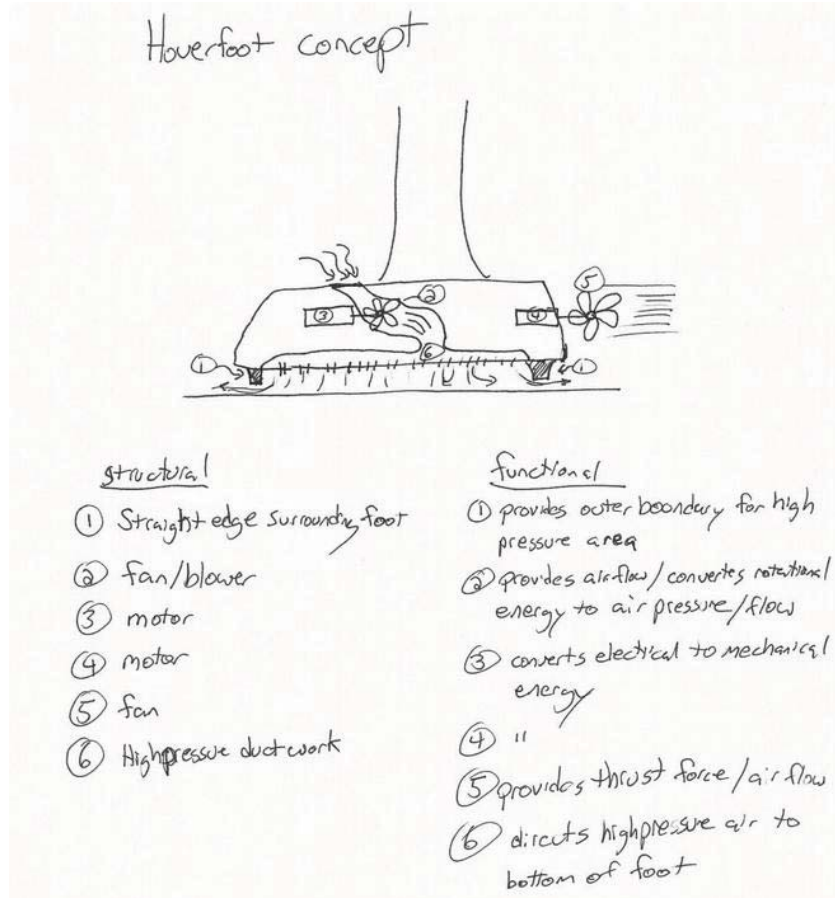 Hoverfoot concept
5
2
3
4
6
1
1
structural
1 Straight edge surrounding foot
2 fan/blower
3 motor
4 motor
5 fan
6 Highpressue ductwork
functional
1 provides outer boundary for high
pressure area
2 provides airflow/convertes rotational
energy to air pressure/flow
3 converts electrical to mechanical
energy
4 "
5 provides thrust force/air flow
6 directs highpressure air to
bottom of foot